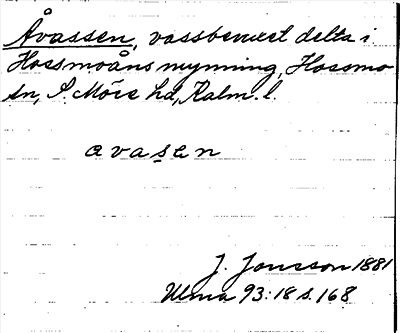 Åvassen, vassbeväxt delta i
Hossmoåns mynning, Hossmo
sn, S. Möre hd, Kalm. l.
avasen
J. Jonsson 1881
Ulma 93:18 s. 168